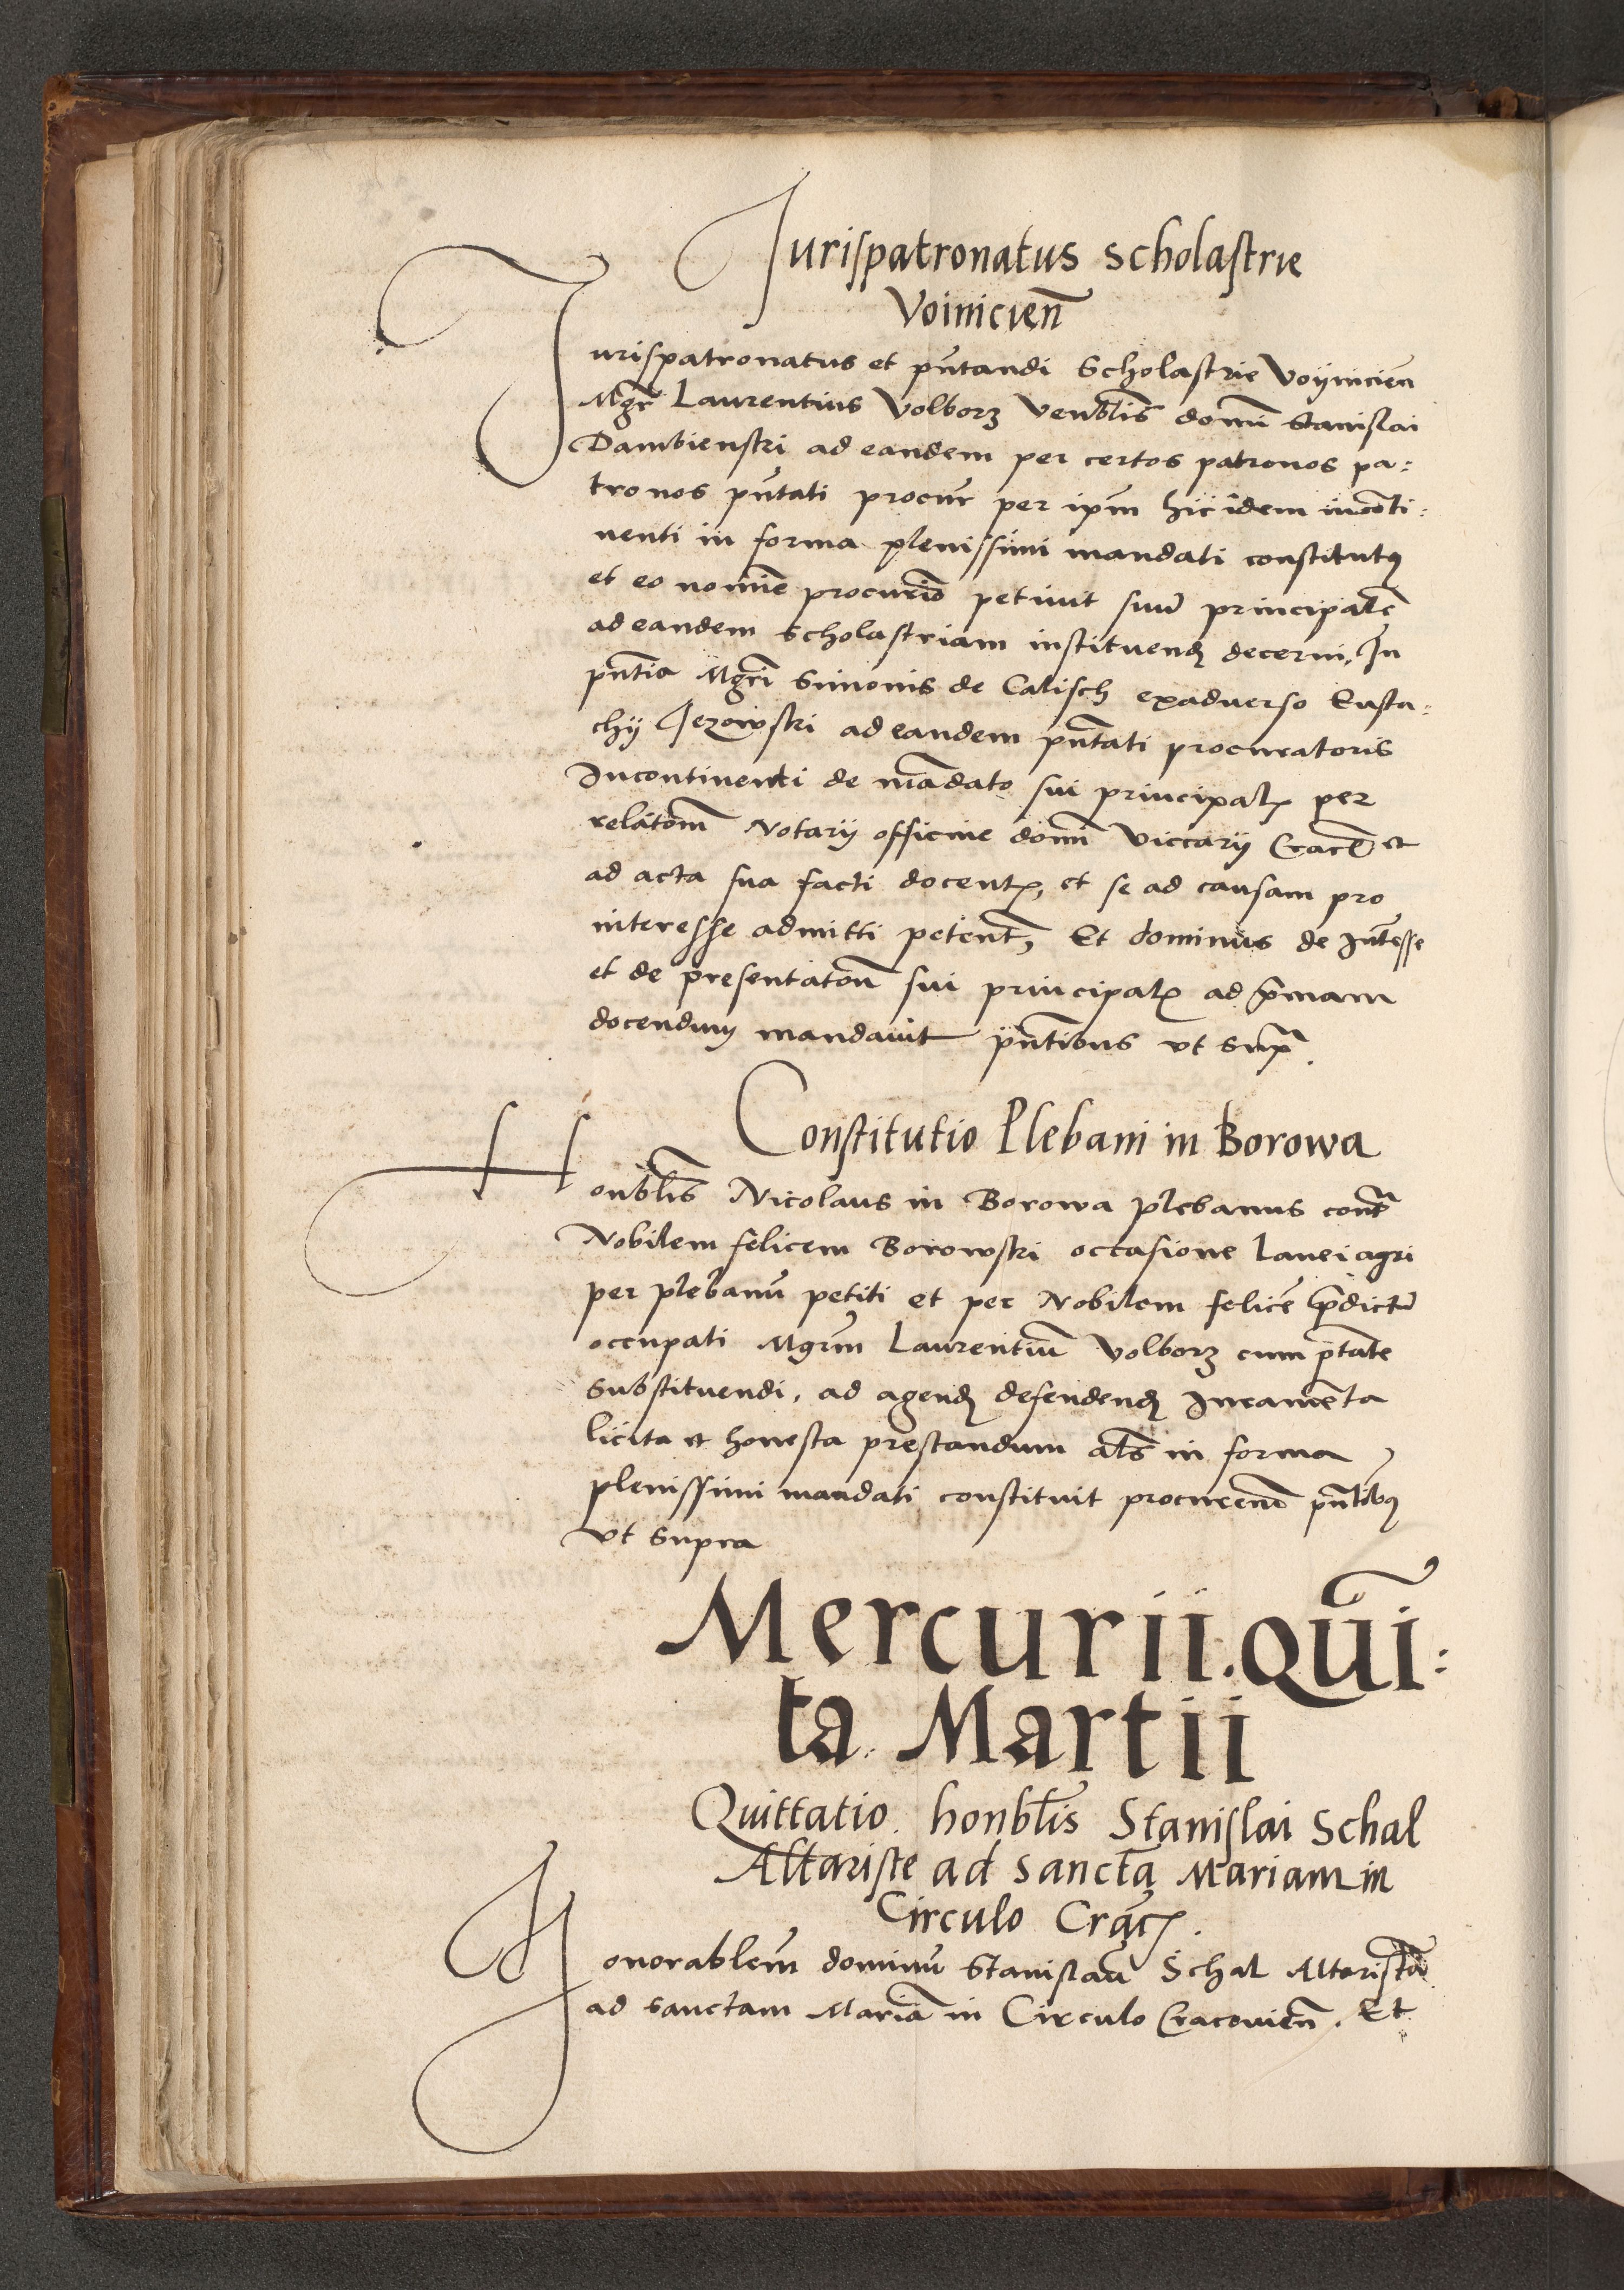 Jurispatronatus scholastrie
Voinicien̄
Jurispatronatus et pn̄tandi Scholastrie Voÿnicien̄
Mgr̄ Laurentius Volborz Venblis̄ domī Stanislai
Dambienski ad eandem per certos patronos pa:
tronos pn̄tati procur̄ per ipm̄ hic idem incōti:
nenti in forma plenissimi mandati constitutꝰ
et eo nomīe procurio petiuit suū principalē
ad eandem scholastriam instituendꝭ decerni, In
pn̄tia Mgrī Simonis de Calisch exaduerso Eusta:
chij Jezowski ad eandem pn̄tati procuratoris
Incontinenti de mādato sui principalꝭ per
relatōm Notarij officine domī Viccarij Cracē et
ad acta sua facti docentꝭ, et se ad causam pro
interesse admitti petentꝭ, Et dominus de Intēsse
et de presentatōn sui principalꝭ ad p̄mam
docendum mandauit pn̄tibus vt supª.
Constitutio Plebani in Borowa
Honblis̄ Nicolaus in Borowa plebanus contª
Nobilem felicem Borowski occasione lanei agri
per plebanū petiti et per Nobilem felicē p̄dictū
occupati Mgrm̄ Laurentiū Volborz cum p̄tate
substituendi, ad agendꝭ defendendꝭ Iuramēta
licita et honesta prestandum als̄ in forma
plenissimi mandati constituit procurēm pn̄tibꝰ
vt supra
Mercurii. Quī:
ta. Martii
Quittatio. honbl̄is Stanislai Schal
Altariste ad sanctā Mariam in
Circulo Cracꝭ.
Honorablem̄ dominū Stanislaū Schal Altaristā
ad sanctam Mariā in Circulo Cracouien̄. Et